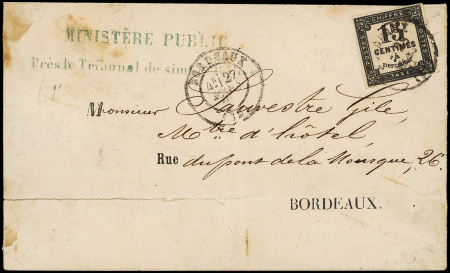 MINISTÈRE PUBLIC
Près le Tribunal de sim
BORDEAUX
27
CHIFFRE
15
CENTIMES
à
percevoir
TAXE
Monsieur Sauvestre Gile,
Mtre d'hôtel,
Rue du pont de la Mousque, 26.
BORDEAUX.